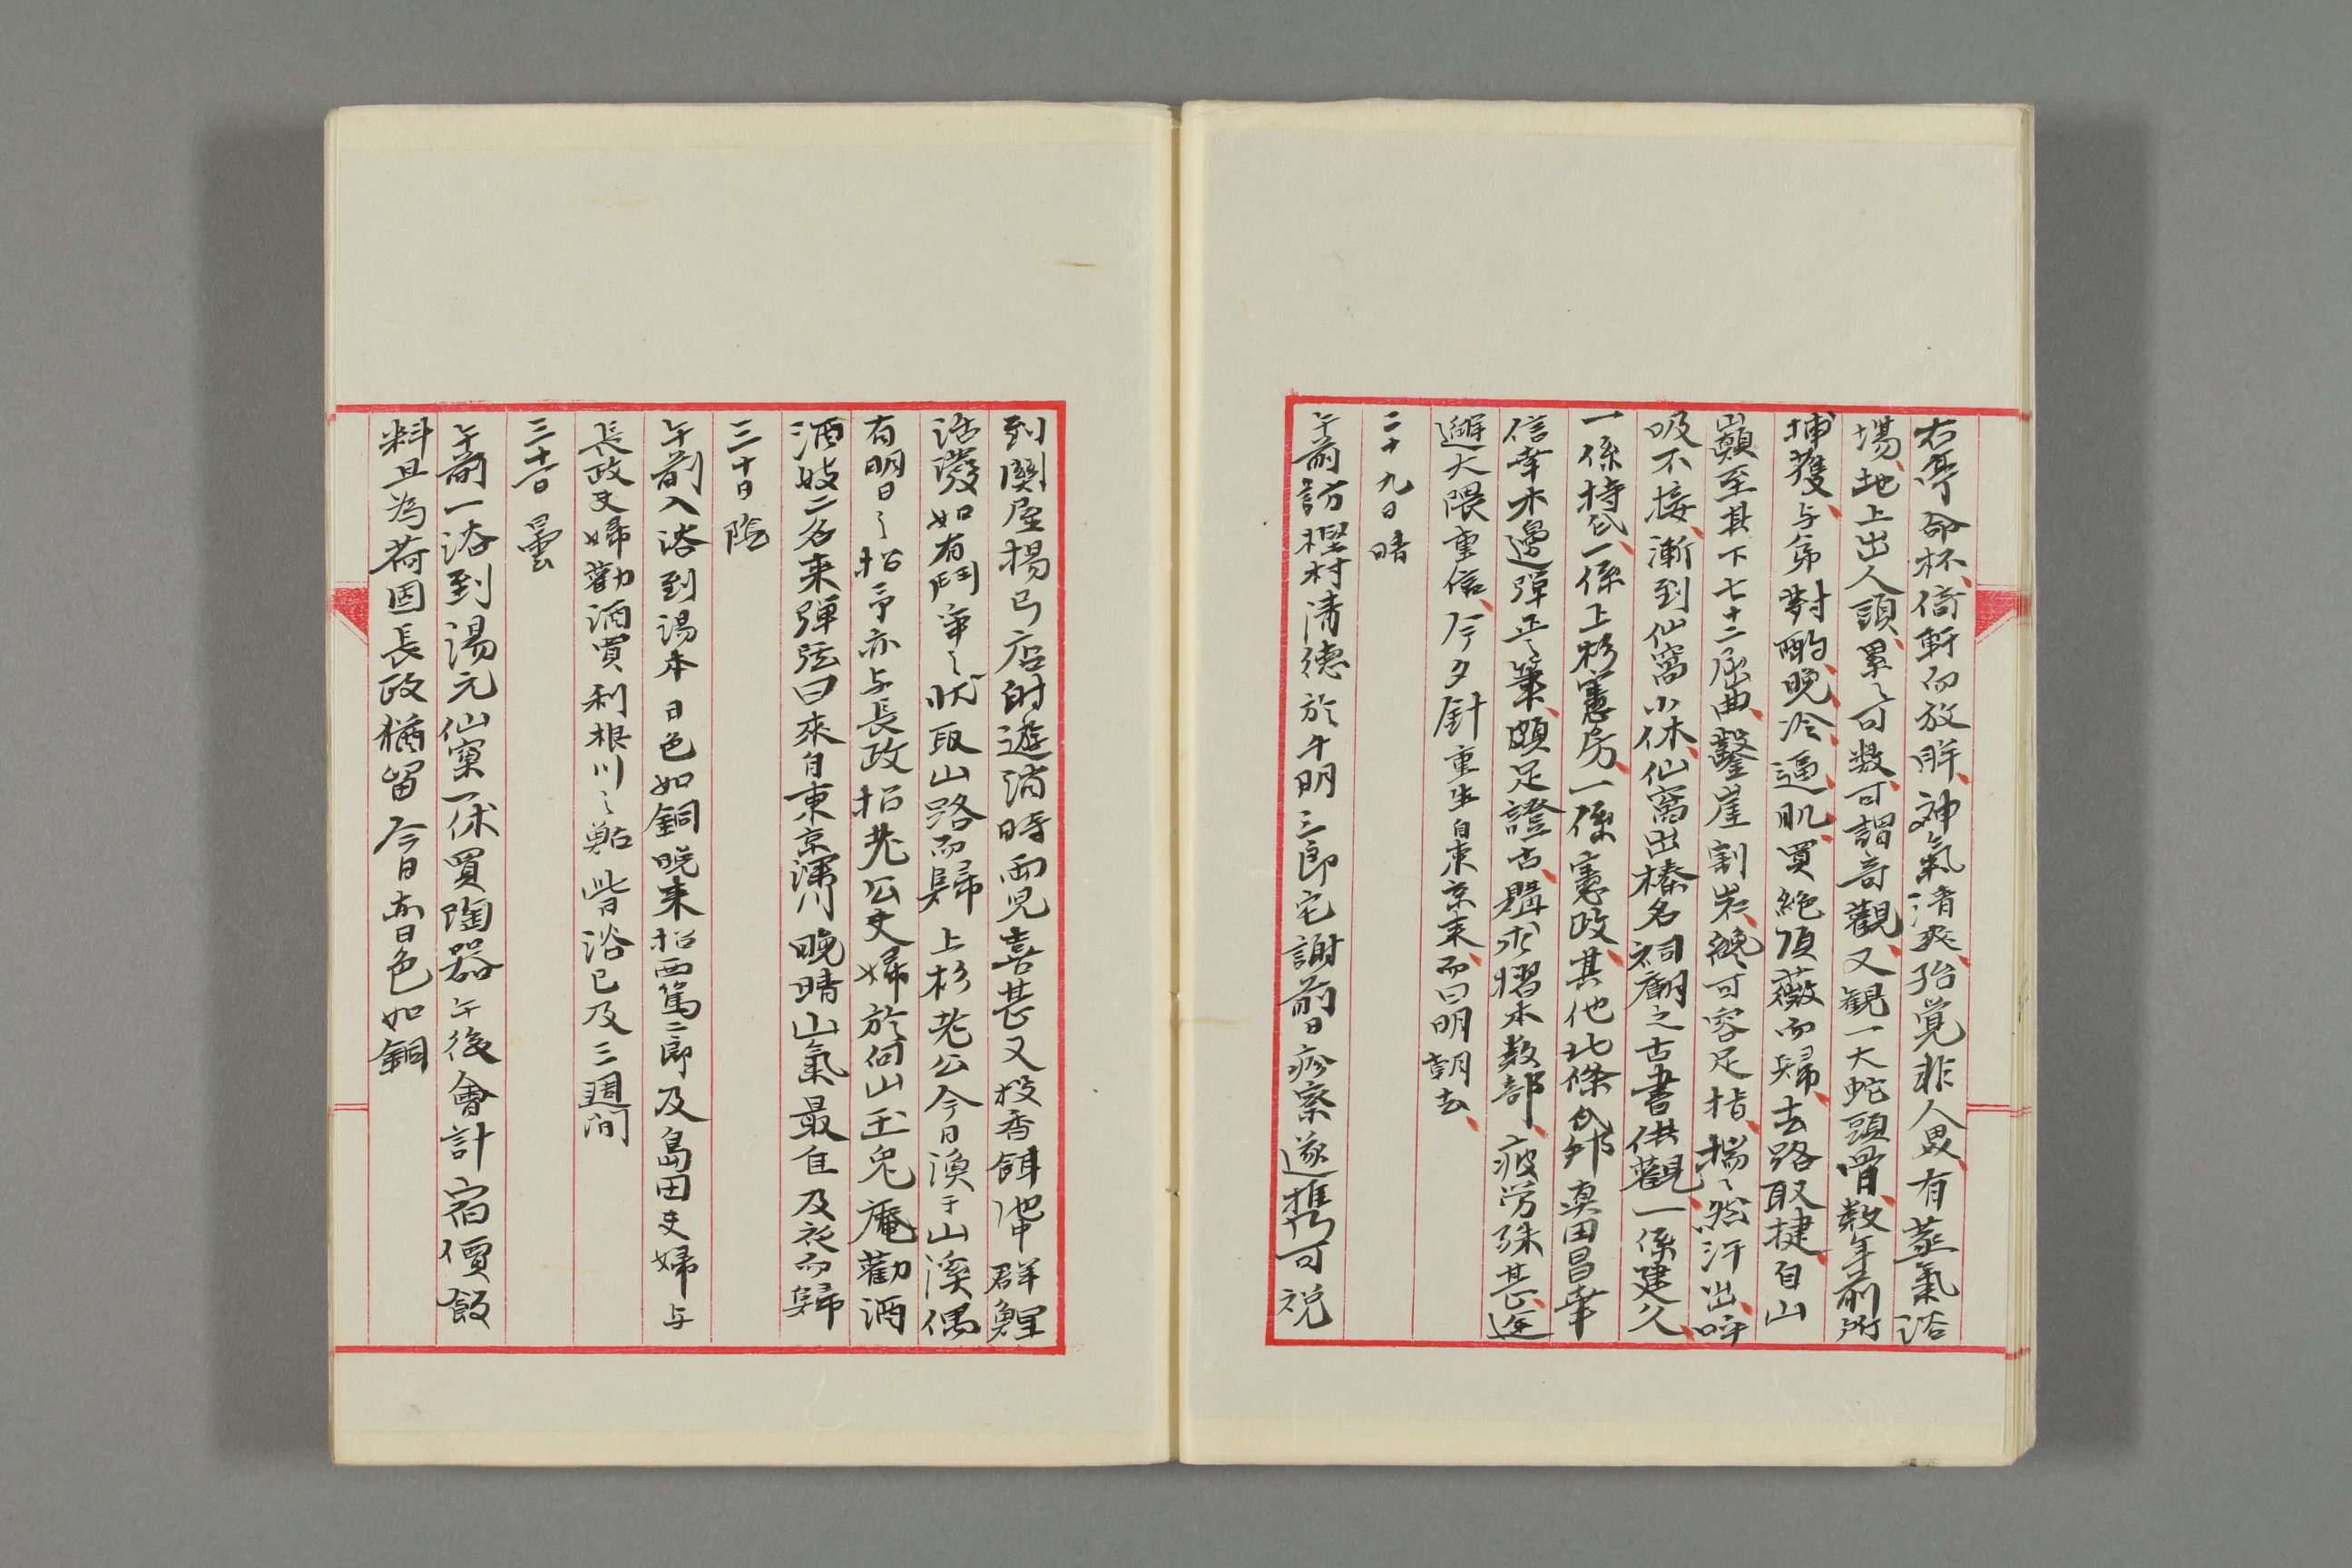 右亭命杯倚軒而放眸、神氣清爽、殆覚非人界、有蒸氣浴
場、地上出人頭、累〻可数、可謂奇觀、又観一大蛇頭骨、数年前所
捕獲、与弟對酌、晩冷逼肌、買絶頂薇而歸、去路取捷、自山
巓至其下七十二屈曲、鑿崖割岩、纔可容足指、惴〻然汗出、呼
吸不接、漸到仙窩小休、仙窩出榛名祠廟之古書供觀、一係建久、
一係持氏、一係上杉憲房、一係憲政、其他北條氏邦真田昌幸
信幸木邊彈正〻筆、頗足證古、購求摺本数部、疲労殊甚、途
邂大隈重信、今夕針重生自東京来、而曰明朝去、
二十九日晴
午前訪樫村清徳於千明三郎宅謝前日疹察遂携可説
到関屋楊弓店射遊消時両児喜甚又投香餌池中群鯉
活潑如有鬪争之状取山路而歸 上杉老公今日漁于山溪偶
有明日〻招予亦与長政招老公夫婦於向山玉兎庵勸酒
酒妓二名来彈弦曰来自東京深川晩晴山氣最佳及夜而歸
三十日陰
午前入浴到湯本日色如銅晩来招西篤二郎及島田夫婦与
長政夫婦勸酒買利根川〻鮎 皆浴已及三週間
三十一日曇
午前一浴到湯元仙窠一休買陶器午後會計宿價飯
料且為荷因長政猶留今日亦日色如銅